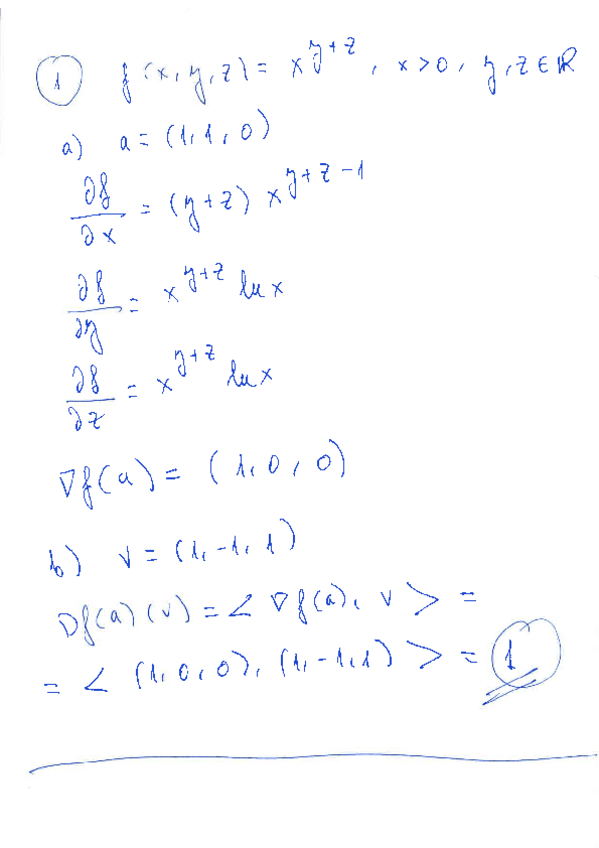 1 f(x, y, z) = x^{y+z}, x > 0, y, z ∈ ℝ
a) a = (1, 1, 0)
∂f/∂x = (y+z) x^{y+z-1}
∂f/∂y = x^{y+z} ln x
∂f/∂z = x^{y+z} ln x
∇f(a) = (1, 0, 0)
b) v = (1, -1, 1)
Df(a)(v) = < ∇f(a), v > =
= < (1, 0, 0), (1, -1, 1) > = 1